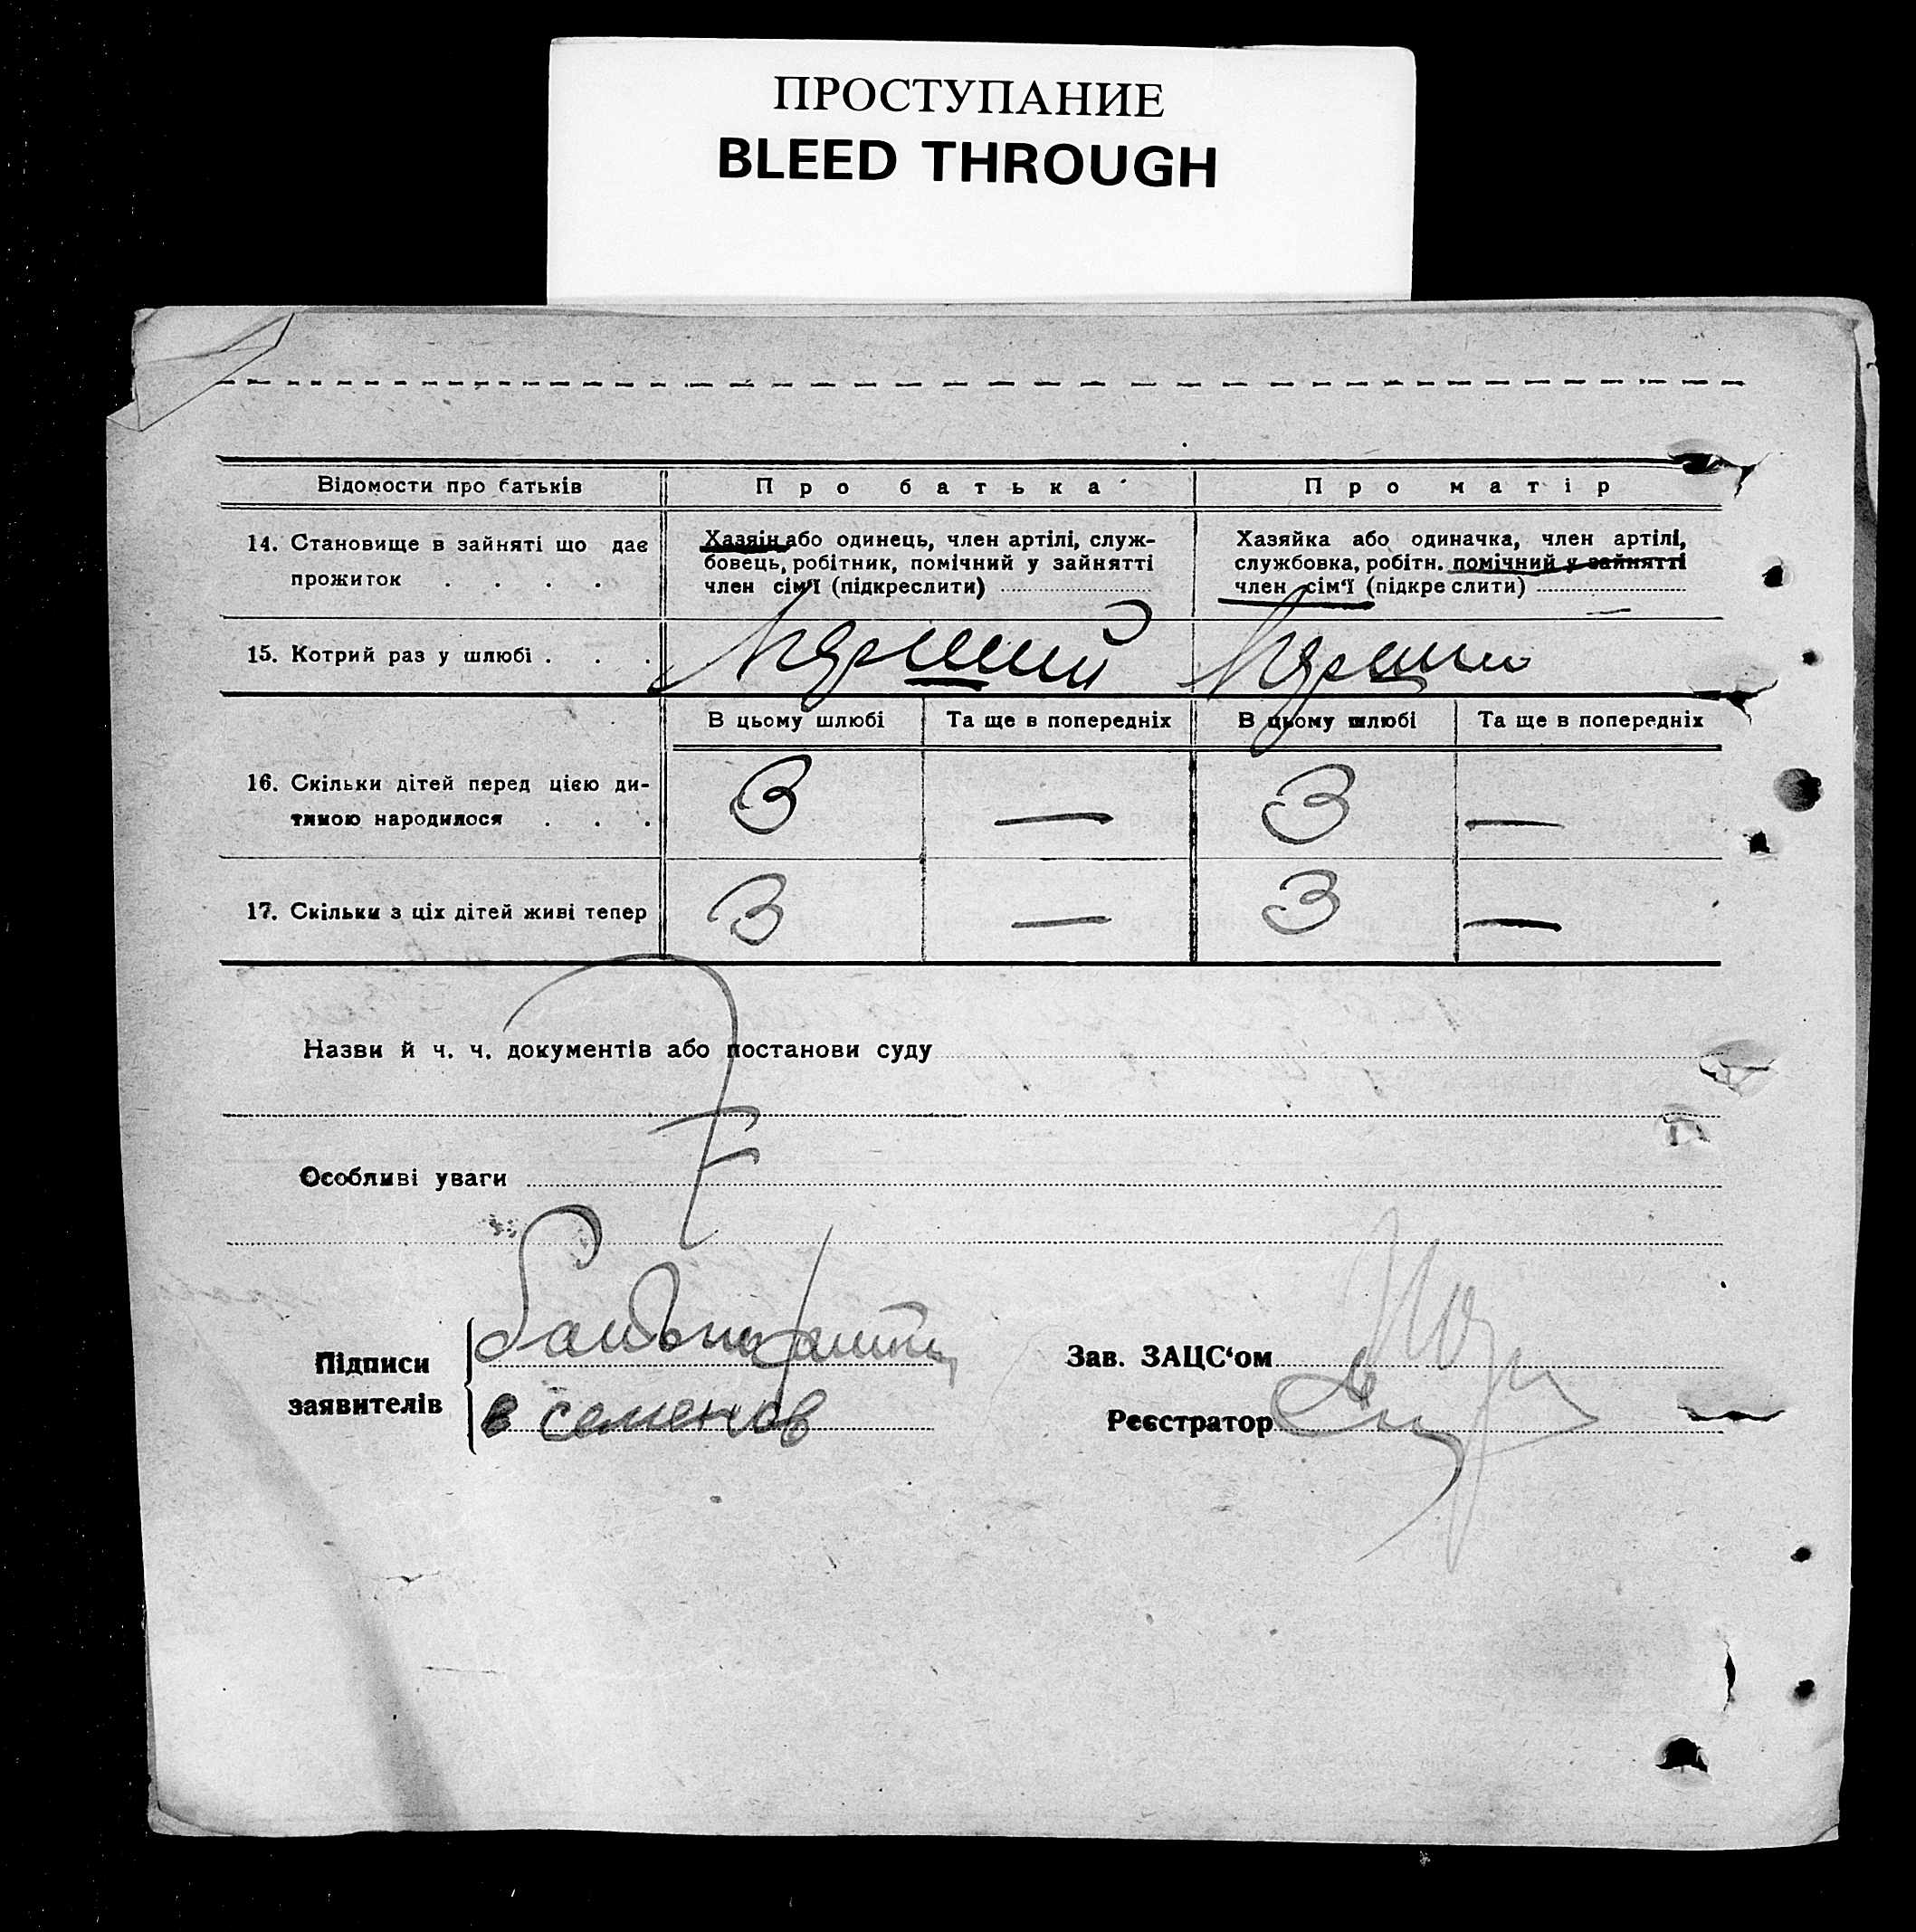 ПРОСТУПАНИЕ
BLEED THROUGH
Відомости про батьків
Про батька
Про матір
14. Становище в зайняті що дає
прожиток . . . .
Хазяін або одинець, член артілі, служ-
бовець, робітник, помічний у зайнятті
член сім'ї (підкреслити)
Хазяйка або одиначка, член артілі,
службовка, робітн. помічний у зайнятті
член сім'ї (підкреслити) —
15. Котрий раз у шлюбі . . .
Перший
В цьому шлюбі
Та ще в попередніх
В цьому шлюбі
Та ще в попередніх
16. Скільки дітей перед цією ди-
тиною народилося . . .
3
—
3
—
17. Скільки з ціх дітей живі тепер
3
—
3
—
Назви й ч. ч. документів або постанови суду
Особливі уваги
Підписи
заявителів
в семенов
Зав. ЗАЦС'ом
Реєстратор